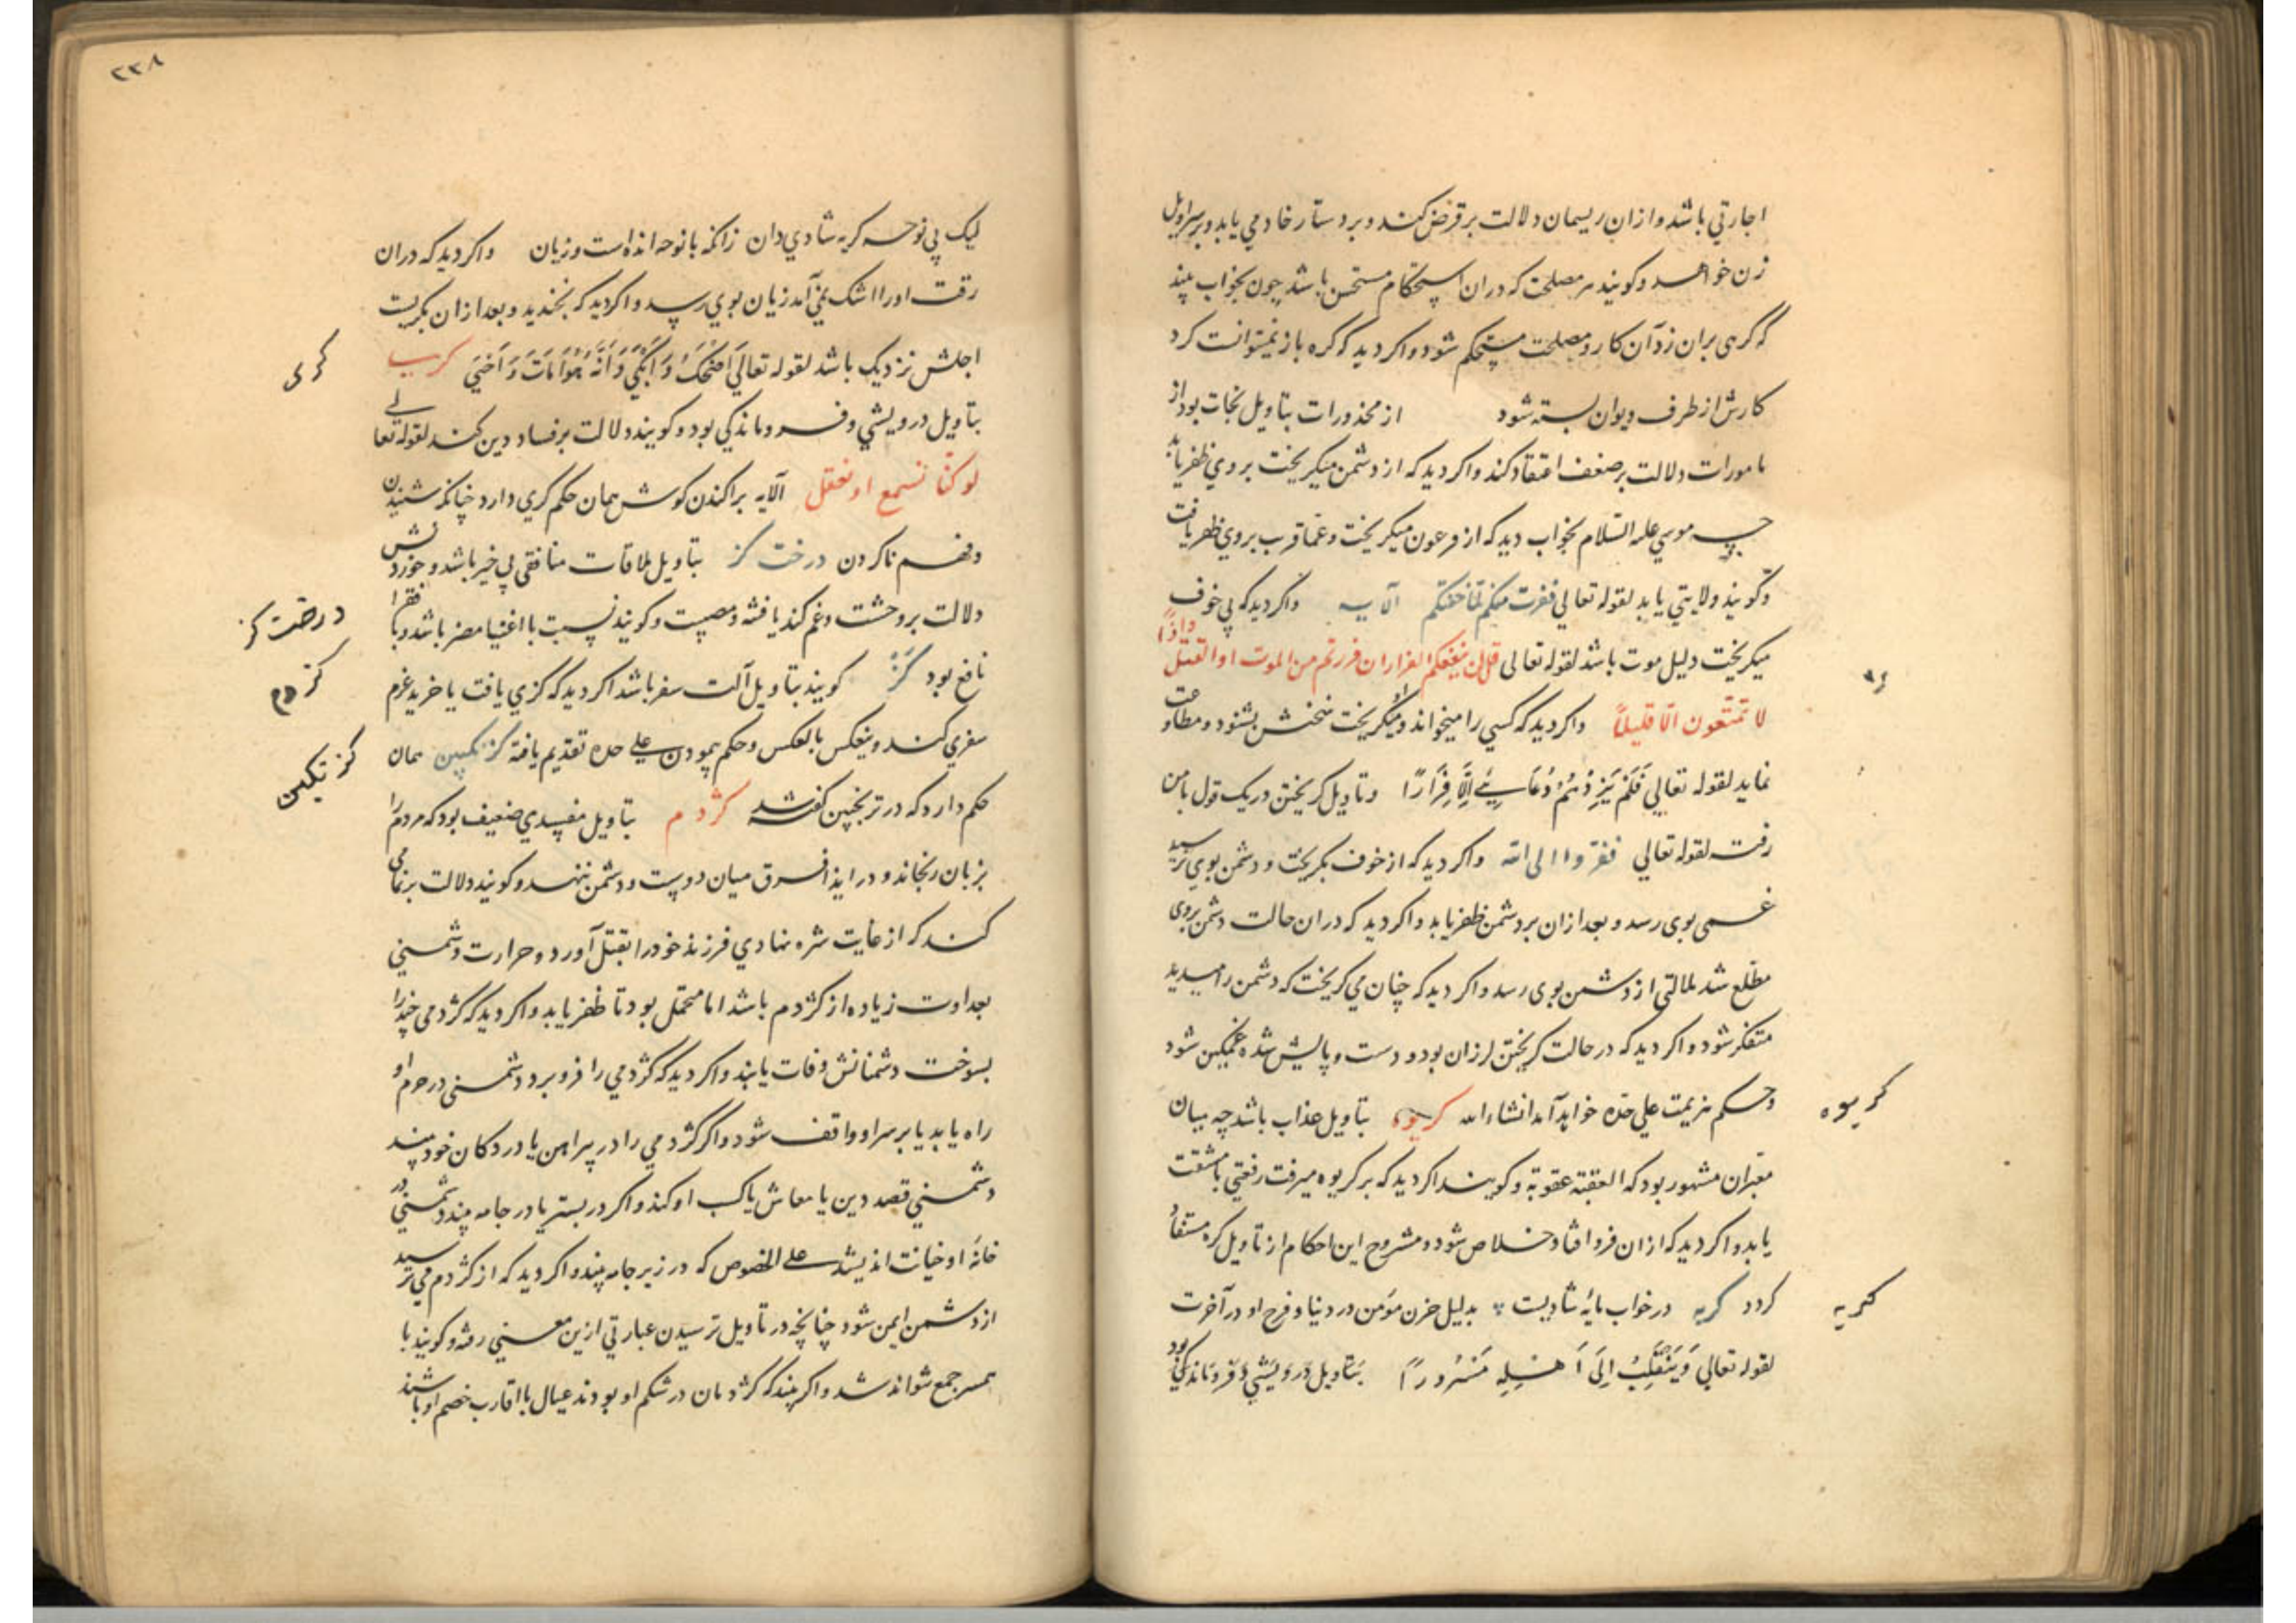 اجارتي باشد و ازان ريسمان دلالت بر قرض كند و بر دستار خادمي يابد و بر سراويل
زن خواهد و كويند هر مصلحت كه دران استحكام مستحسن باشد چون بخواب بيند
كه كرهى بران زد آن كار و مصلحت مستحكم شود و اكر ديد كه كره باز نميتوانست كرد
كارش از طرف ديوان بسته شود از محذورات بتاويل نجات بود از
مامورات دلالت بر ضعف اعتقاد كند و اكر ديد كه از دشمن ميكريخت بر وي ظفر يابد
چه موسي عليه السلام بخواب ديد كه از فرعون ميكريخت و عماقرب بر وي ظفر يافت
و كويند ولايتي يابد لقوله تعالي ففرت منكم لما خفتكم الآيه و اكر ديد كه بي خوف
ميكريخت دليل موت باشد لقوله تعالى قل لن ينفعكم الفرار ان فررتم من الموت او القتل و اذًا
لا تمتعون الّا قليلًا و اكر ديد كه كسي را ميخواند و او ميكريخت سخنش بشنود و مطاوعت
نمايد لقوله تعالي فَلَم يَزِدْهُمْ دُعَايئ اِلَّا فِرَارًا و تاويل كريختن در يك قول با من
رفت لقوله تعالي ففروا الى الله و اكر ديد كه از خوف بكريخت و دشمن بوي نرسيد
غمى بوى رسد و بعد ازان بر دشمن ظفر يابد و اكر ديد كه دران حالت دشمن بروى
مطّلع شد ملالتى از دشمن بوى رسد و اكر ديد كه چنان مي كريخت كه دشمن را ميديد
متفكر شود و اكر ديد كه در حالت كريختن لرزان بود و دست و پايش شده غمكين شود
و حكم هزيمت علي حده خواهد آمد انشاء الله كريوه بتاويل عذاب باشد چه ميان
معبران مشهور بود كه العقبة عقوبة و كويند اكر ديد كه بر كريوه ميرفت رفعتي با مشقت
يابد و اكر ديد كه ازان فرو افتاد خلاص شود و مشروح اين احكام از تاويل كره مستفاد
كردد كريه در خواب مايه شاديست بدليل حزن مؤمن در دنيا و فرح او در آخرت
لقوله تعالي وَيَنْقَلِبُ اِلَى اَهْلِهِ مَسْرُورًا بتاويل درويشي و فروماندكي بود
كريوه
كريه
٢٣٨
ليك بي نوحه كريه شادي دان زانكه با نوحه انده است و زيان و اكر ديد كه دران
رقت او را اشك نمي آمد زيان بوي رسد و اكر ديد كه بخنديد و بعد ازان بكريست
اجلش نزديك باشد لقوله تعالي اَضْحَكَ وَ اَبْكَي وَ اَنَّهُ هُوَ اَمَاتَ وَ اَحْيَي كرى
بتاويل درويشي و فروماندكي بود و كويند دلالت بر فساد دين كند لقوله تعالي
لو كنّا نسمع او نعقل الآيه براكندن كوش همان حكم كري دارد چنانكه شنيدن
و فهم ناكردن درخت كز بتاويل ملاقات منافقي بي خير باشد و خوردنش
دلالت بر وحشت و غم كند يا فتنه و مصيبت و كويند نسبت با اغنيا مضر باشد و با فقرا
نافع بود كَز كويند بتاويل آلت سفر باشد اكر ديد كه كزي يافت يا خريد عزم
سفري كند و ينعكس بالعكس و حكم پيمودن على حده تقديم يافته كزنكبين همان
حكم دارد كه در ترنجبين كفته شد كژدم بتاويل مفسدي ضعيف بود كه مردم را
بزبان رنجاند و در ايذا فرق ميان دوست و دشمن ننهد و كويند دلالت بر نمامى
كند كه از غايت شره نهادي فرزند خود را بقتل آورد و حرارت دشمني
بعداوت زياده از كژدم باشد اما محتمل بود تا ظفر يابد و اكر ديد كه كژدمى چند را
بسوخت دشمنانش وفات يابند و اكر ديد كه كژدمي را فرو برد دشمنى در حرم او
راه يابد يا بر سر او واقف شود و اكر كژدمي را در پيراهن يا در دكان خود بيند
دشمني قصد دين يا معاش يا كسب او كند و اكر در بستر يا در جامه بيند دشمني در
خانه او خيانت انديشد على الخصوص كه در زير جامه بيند و اكر ديد كه از كژدم مي ترسيد
از دشمن ايمن شود چنانچه در تاويل ترسيدن عبارتي ازين معني رفته و كويند با
همسر جمع نتواند شد و اكر بيند كه كژدمان در شكم او بودند عيال با اقارب خصم او باشند
كرى
درخت كز
كزدم
كزنكبين